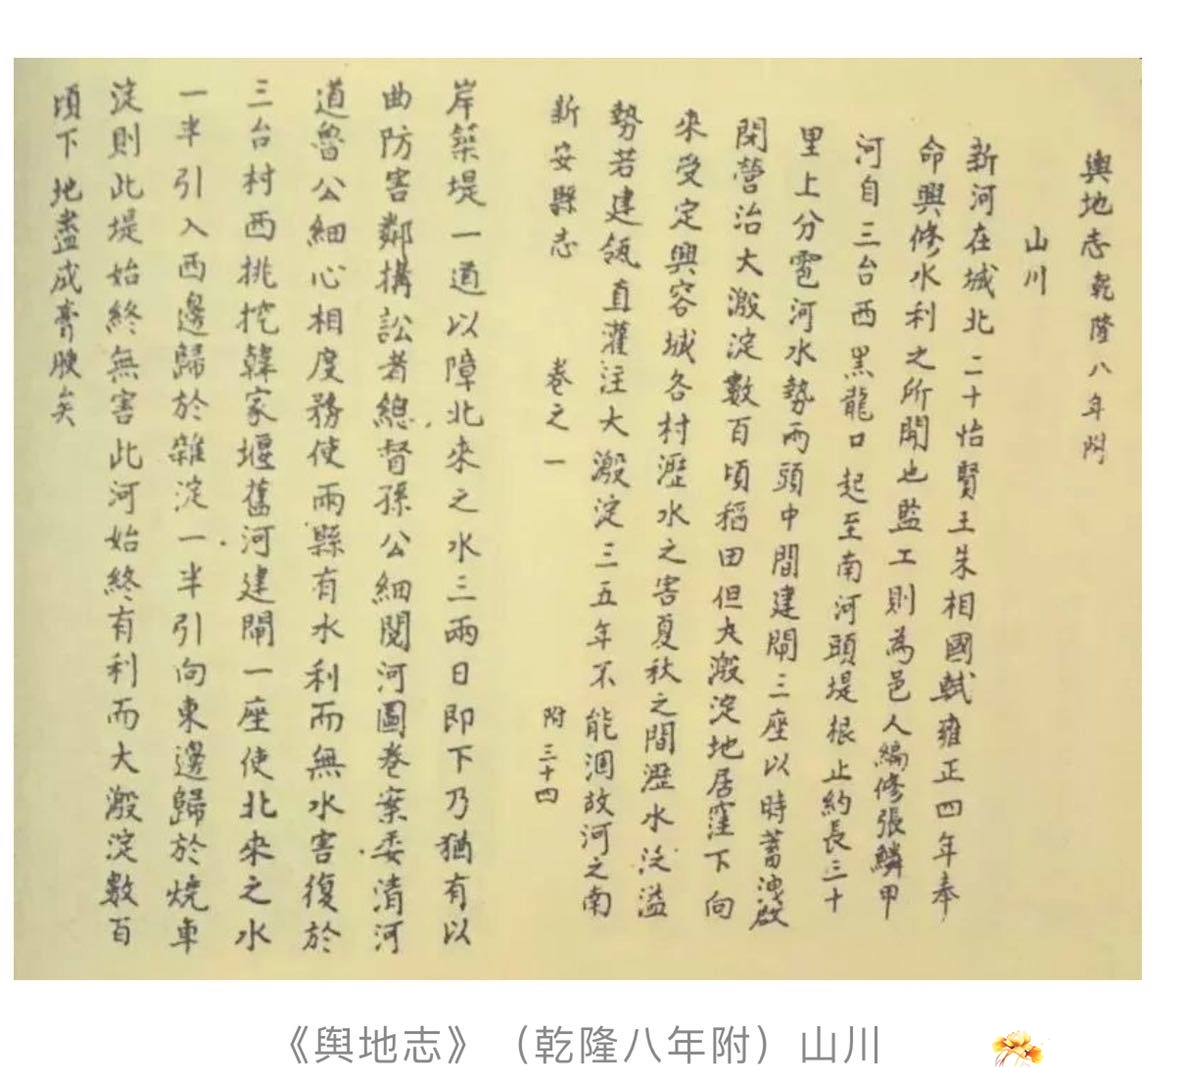 輿地志乾隆八年附
山川
新河在城北二十怡賢王朱相國軾雍正四年奉
命興修水利之所開也監工則為邑人編修張鱗甲
河自三台西黑龍口起至南河頭堤根止約長三十
里上分雹河水勢兩頭中間建閘三座以時蓄洩啟
閉營治大溵淀數百頃稻田但大溵淀地居窪下向
來受定興容城各村瀝水之害夏秋之間瀝水泛溢
勢若建瓴直灌注大溵淀三五年不能涸故河之南
新安縣志 卷之一 附三十四
岸築堤一道以障北來之水三兩日即下乃猶有以
曲防害鄰搆訟者總督孫公細閱河圖卷案委清河
道魯公細心相度務使兩縣有水利而無水害復於
三台村西挑挖韓家堰舊河建閘一座使北來之水
一半引入西邊歸於雜淀一半引向東邊歸於燒車
淀則此堤始終無害此河始終有利而大溵淀數百
頃下地盡成膏腴矣
《舆地志》（乾隆八年附）山川